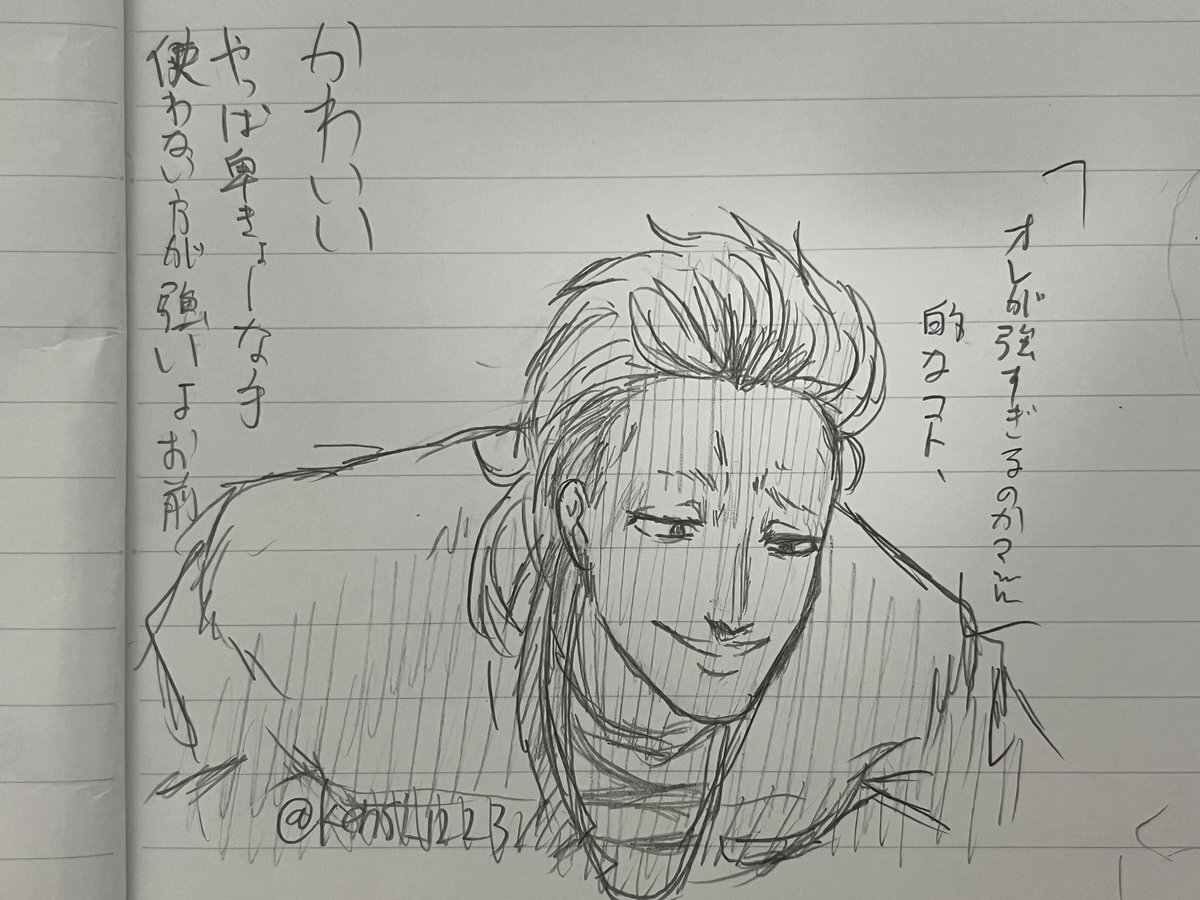 「オレが強すぎるのかマ
的なコト、
かわいい
やっぱ卑きょーな手
使わない方が強いよお前